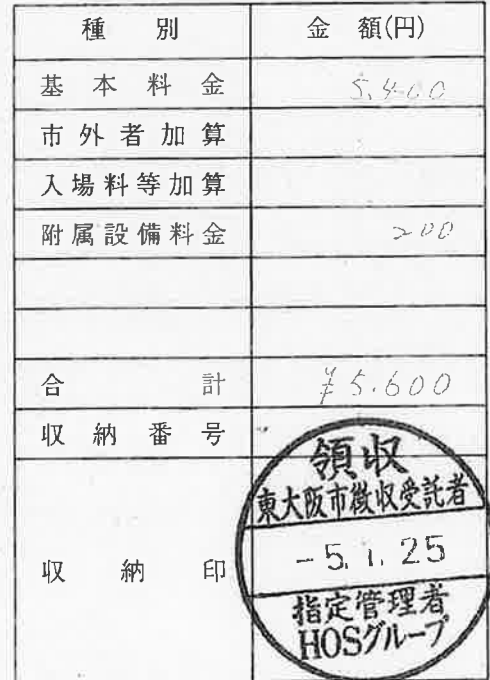 種別 金額(円)
基本料金 5,400
市外者加算
入場料等加算
附属設備料金 200
合計 ¥5.600
収納番号
収納印
領収
東大阪市徴収受託者
-5.1.25
指定管理者
HOSグループ